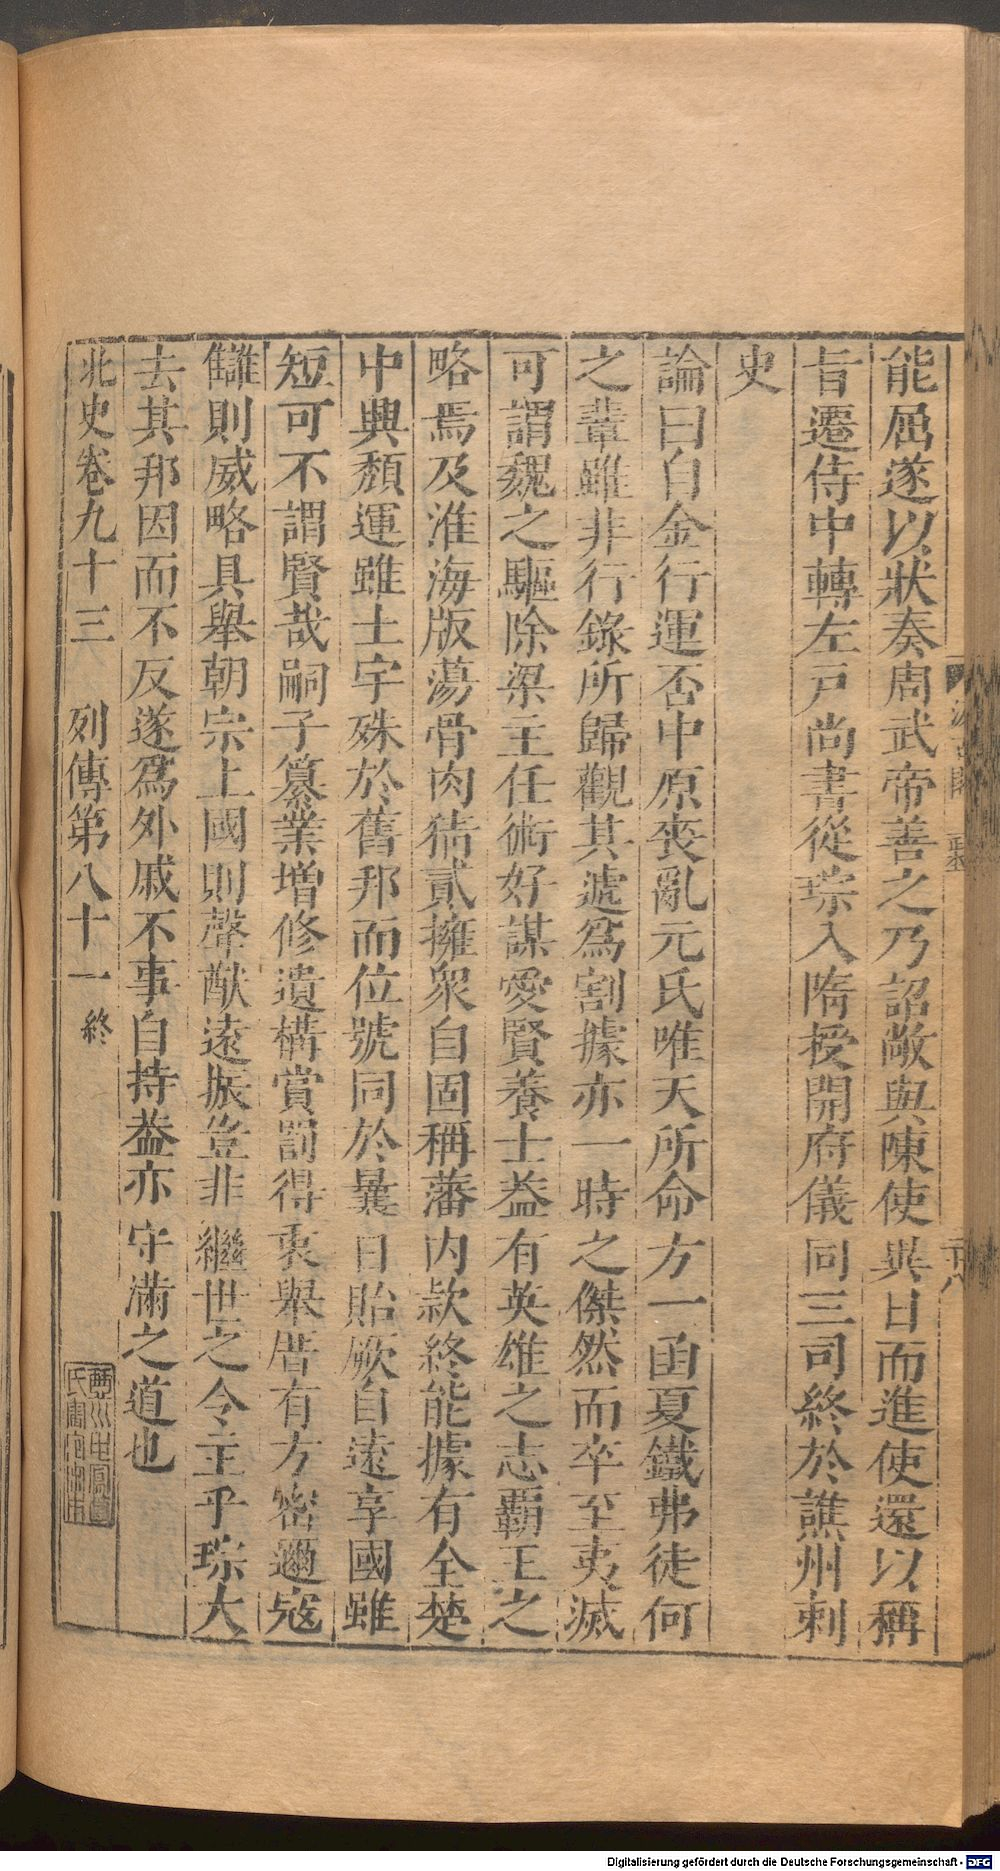 能屈遂以狀奏周武帝善之乃詔敞與陳使異日而進使還以稱
旨遷侍中轉左戸尚書從琮入隋授開府儀同三司終於譙州刺
史
論曰自金行運否中原喪亂元氏唯天所命方一函夏鐵弗徒何
之輩雖非行錄所歸觀其遞爲割據亦一時之傑然而卒至夷滅
可謂魏之驅除梁主任術好謀愛賢養士葢有英雄之志覇王之
略焉及淮海版蕩骨肉猜貳擁衆自固稱藩内款終能據有全楚
中興頽運雖土宇殊於舊邦而位號同於曩日貽厥自遠享國雖
短可不謂賢哉嗣子纂業増修遺構賞罰得衷舉厝有方密邇寇
讎則威略具舉朝宗上國則聲猷遠振豈非繼世之令主乎琮大
去其邦因而不反遂爲外戚不事自持葢亦守滿之道也
北史卷九十三 列傳第八十一 終
Digitalisierung gefördert durch die Deutsche Forschungsgemeinschaft - DFG